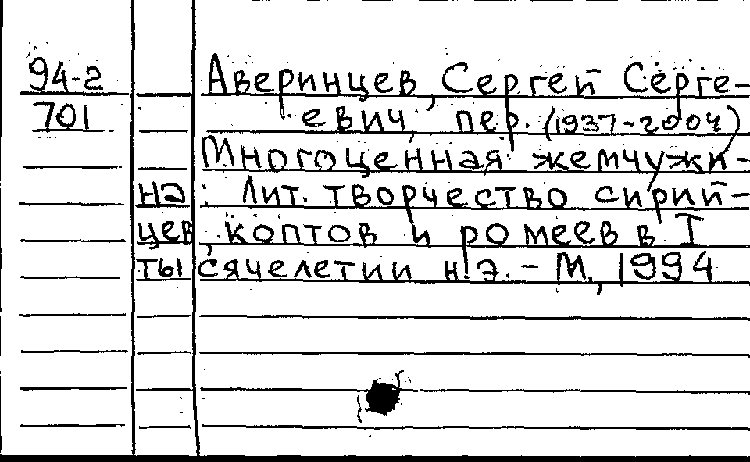 94-2 Аверинцев, Сергей Серге-
701 евич, пер. (1937-2004)
Многоценная жемчужи-
на: Лит. творчество сирий-
цев, коптов и ромеев в I
тысячелетии н.э. - М., 1994